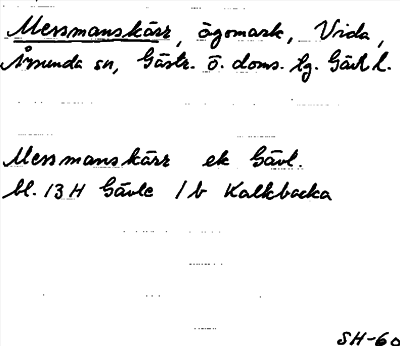 Messmanskärr, ägomark, Vida,
Årsunda sn, Gästr. ö. doms. hg. Gävl l.
Messmanskärr ek Gävl.
bl. 13 H Gävle 1b Kalkbacka
SH-60